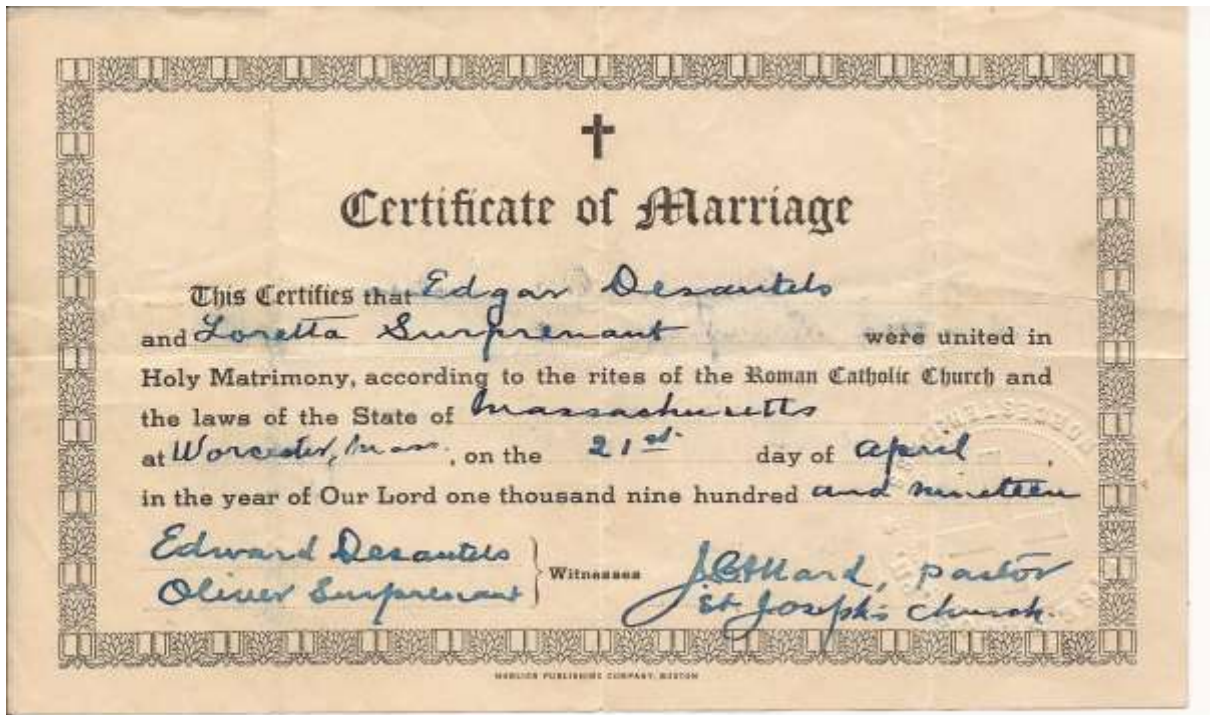 Certificate of Marriage
This Certifies that Edgar Desautels
and Loretta Surprenant were united in
Holy Matrimony, according to the rites of the Roman Catholic Church and
the laws of the State of Massachusetts
at Worcester, Mass. , on the 21st day of April ,
in the year of Our Lord one thousand nine hundred and nineteen
Edward Desautels
Oliver Surprenant
Witnesses
Pastor
St Joseph's Church.
PUBLISHING COMPANY, BOSTON